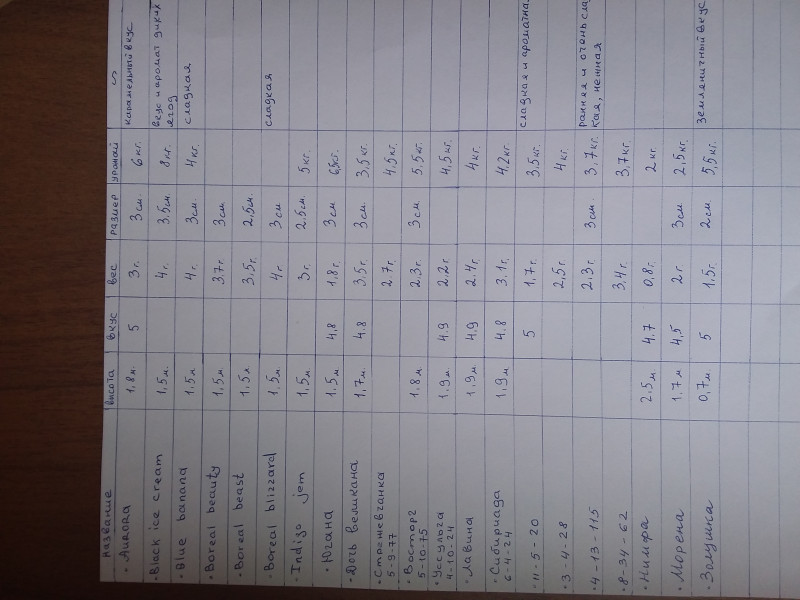 название высота вкус вес размер урожай
· Aurora 1,8м. 5 3г. 3см. 6кг. карамельный вкус
· Black ice cream 1,5м. 4г. 3,5см. 8кг. вкус и аромат диких
ягод
· Blue banana 1,5м 4г. 3см 4кг. сладкая
· Boreal beauty 1,5м 3.7г. 3см
· Boreal beast 1,5м 3,5г. 2,5см
· Boreal blizzard 1,5м. 4г. 3см сладкая
· Indigo jem 1,5м 3г. 2,5см. 5кг.
· Югана 1,5м 4,8 1,8г. 3см
· Дочь великана 1,7м. 4.8 3,5г. 3см. 3,5кг.
· Стрежевчанка 2.7г. 4,5кг.
5-9-77
· Восторг 1.8м 2.3г. 3см 5.5кг.
5-10-75
· Уссульга 1.9м 4.9 2,2г. 4,5кг.
4-10-24
· Лавина 1,9м 4,9 2.4г. 4кг.
· Сибириада 1,9м 4.8 3.1г. 4,2кг.
6-4-24
· 11-5-20 5 1,7г. 3,5кг. сладкая и ароматная
· 3-4-28 2,5г. 4кг
· 4-13-115 2.3г. 3см. 3.7кг. ранняя и очень сла
кая, нежная
· 8-34-62 3,4г. 3,7кг
· Нимфа 2.5м 4.7 0,8г. 2кг.
· Морена 1.7м 4,5 2г 3см 2,5кг.
· Золушка 0,7м 5 1,5г. 2см 5,5кг. земляничный вкус